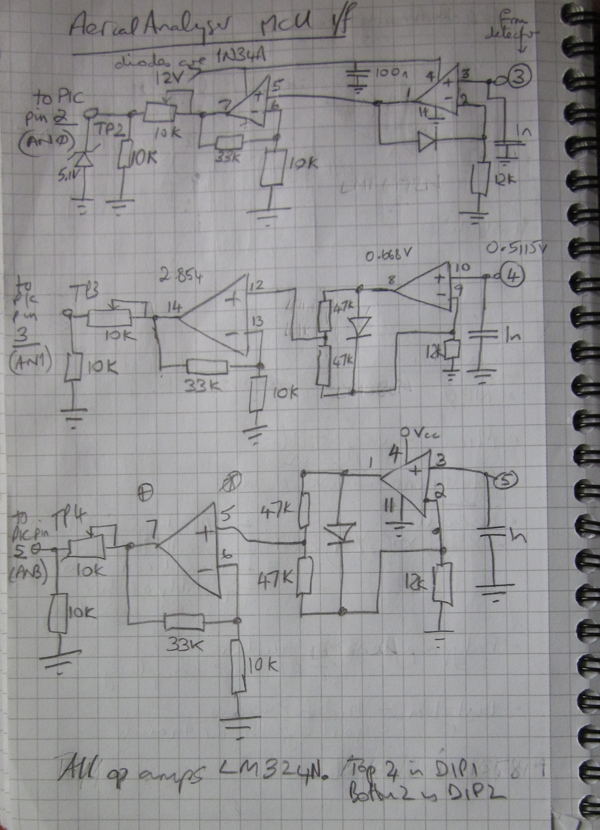 Aerial Analyser MCU i/f
diodes are 1N34A
from
detector
12V
100n
5
4
3
3
to PIC
pin 2
(AN0)
TP2
10K
7
6
1
2
11
33K
1n
5.1V
10K
10K
12K
2.854
0.668V
0.5115V
to
PIC
pin
3
(AN1)
TP3
14
12
8
10
4
10K
13
47K
9
47K
12K
1n
10K
33K
10K
Vcc
4
1
3
5
to
PIC pin
5
(AN3)
TP4
7
5
47K
11
2
1n
10K
6
47K
12K
10K
33K
10K
All op amps LM324N. Top 4 in DIP1
Bottom 2 in DIP2